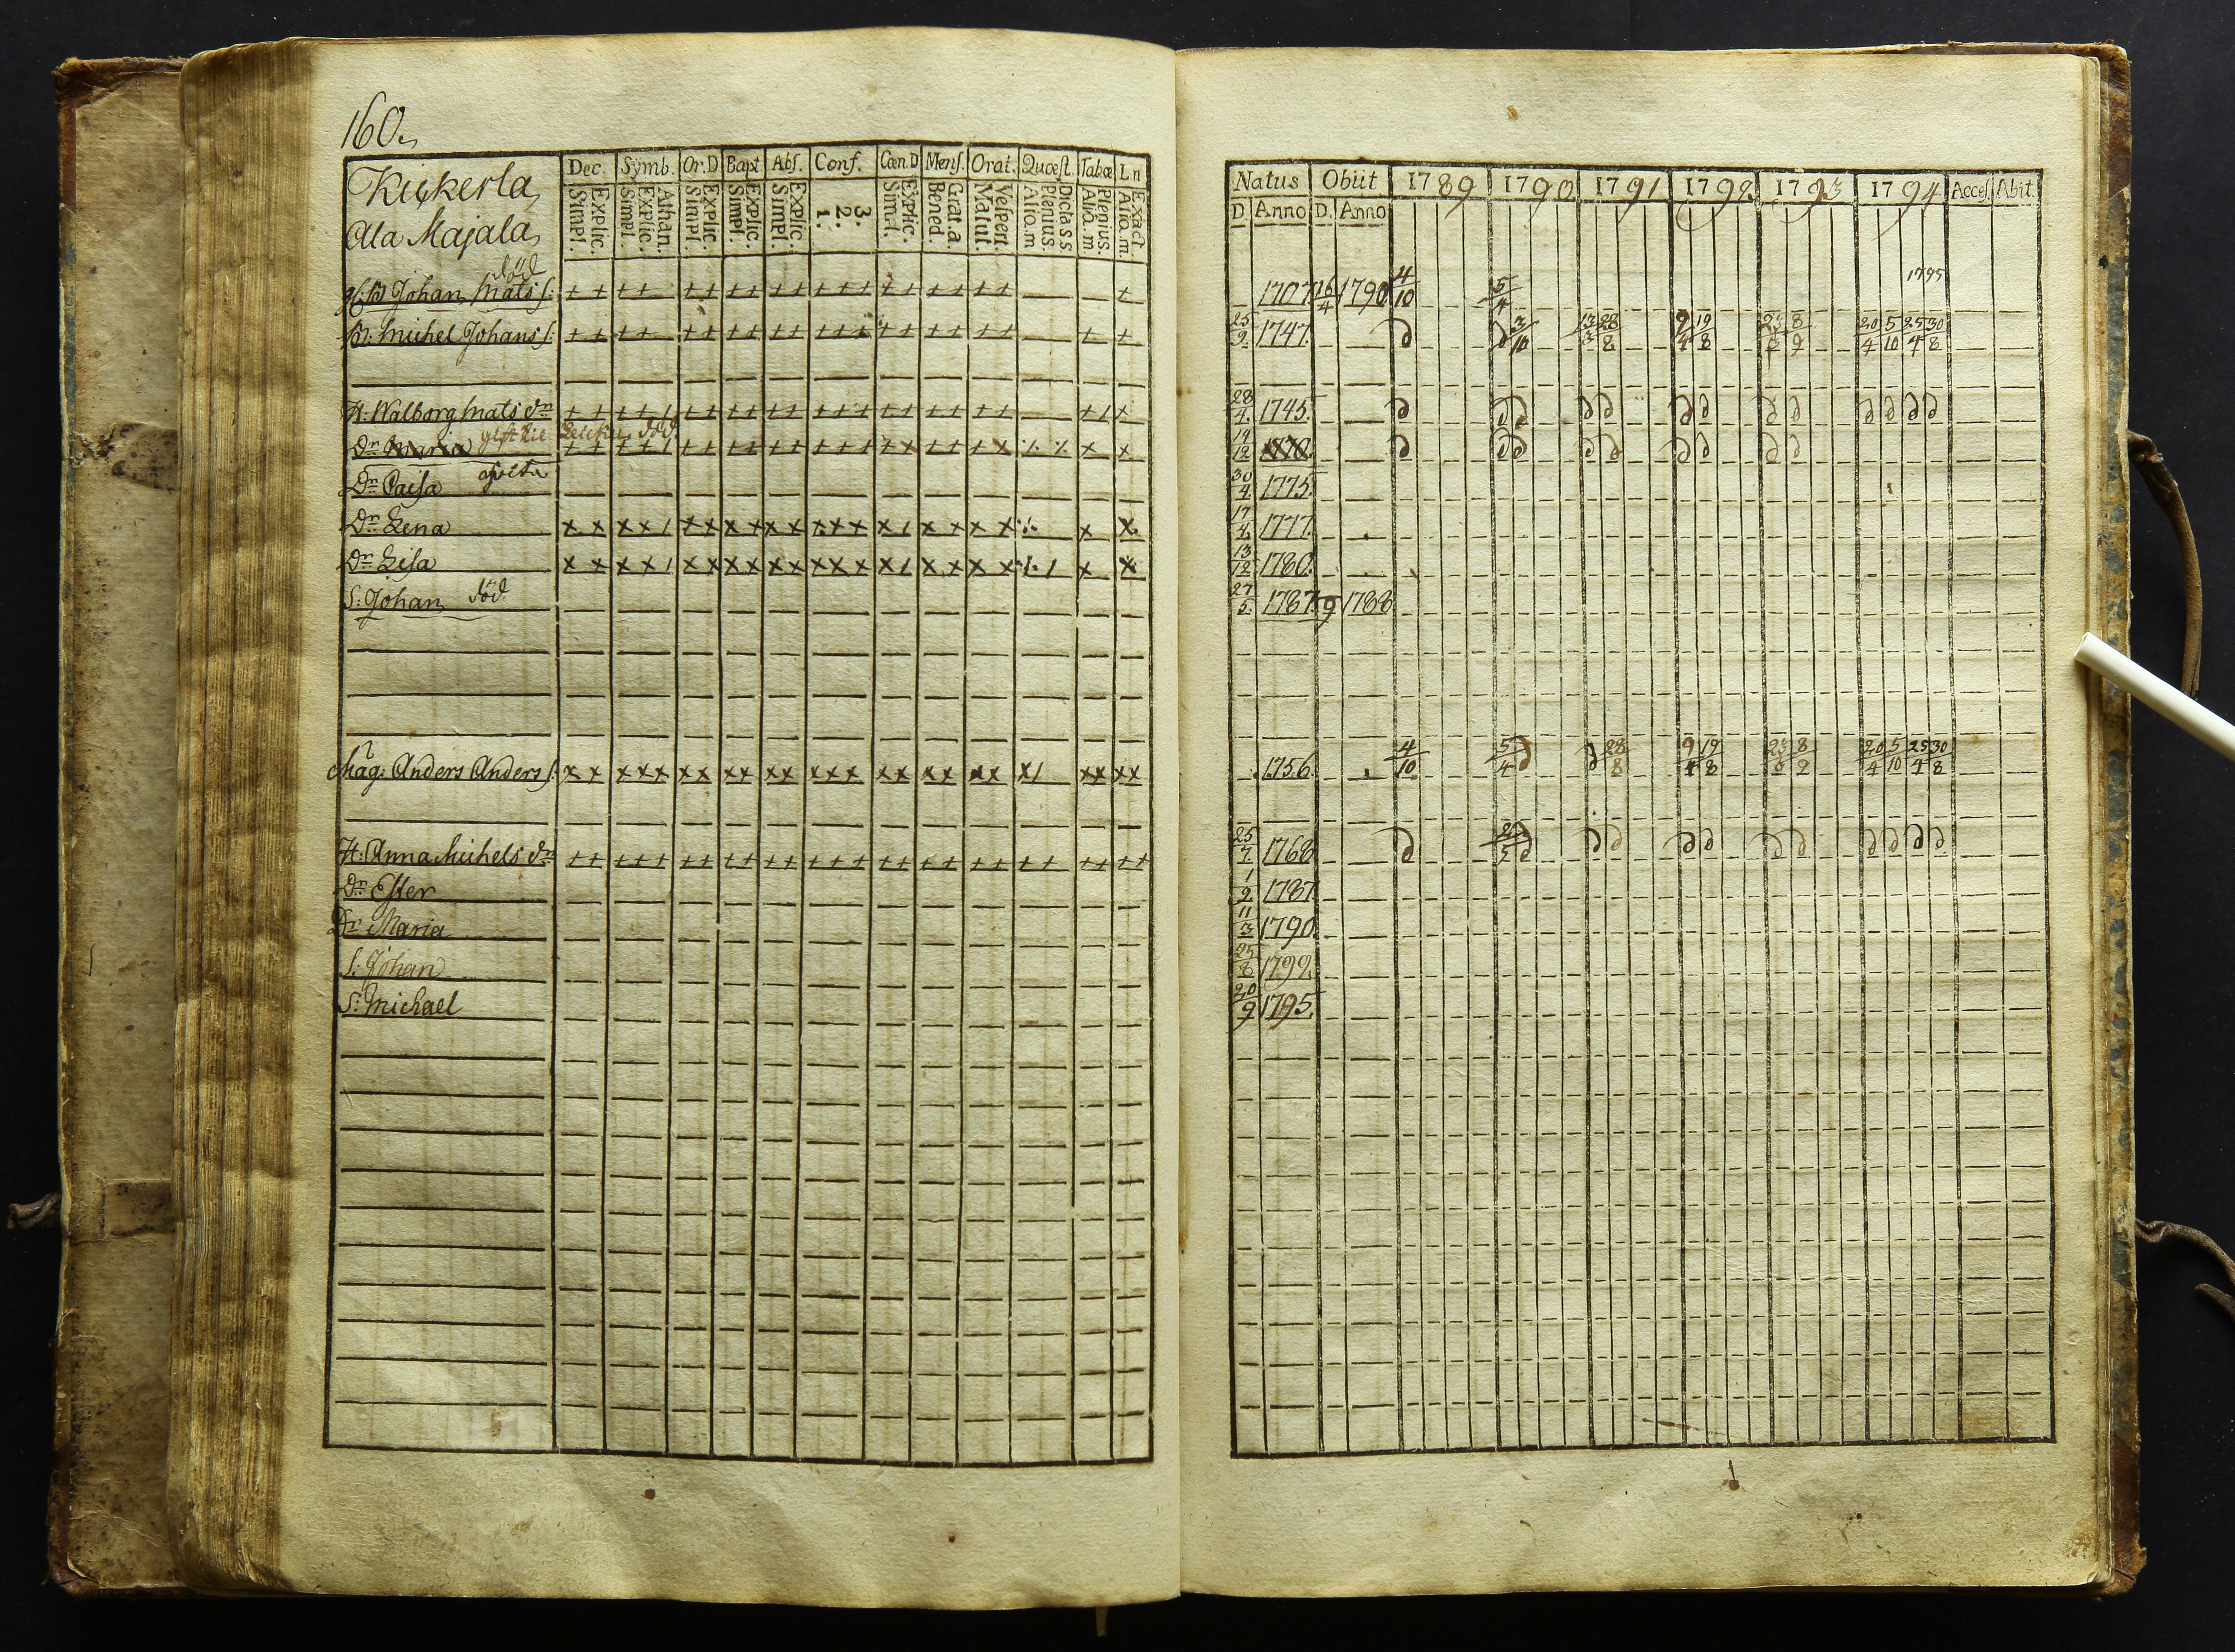 160.
Kickerla
Ala Majala
Dec. Symb. Or.D Bapt Abs. Conf. Cœn.D Mens. Orat. Quæst. Tabæ L.n
Simpl. Explic. Simpl. Explic. Athan. Simpl. Explic. Simpl. Explic. Simpl. Explic. 1. 2. 3. Simpl. Explic. Bened. Grat.a. Matut. Vespert. Alio.m Planius. Dicta SS Alio.m Plenius. Alio.m. Exact
Natus Obiit 1789 1790 1791 1792 1793 1794 Acces. Abit.
D. Anno D. Anno
död
Johan Mats s: + + + + + + + + + + + + + + + + + + + + 1707 16/4 1790 4/10 5/4 1795
B: Michel Johans s: + + + + + + + + + + + + + + + + + + + + + 25/9 1747. 3/10 13/3 28/8 9/4 19/8 8/9 20/4 5/10 25/4 30/8
H: Walborg Mats dr + + + + / + + + + + + + + + + + + + + + + / x 28/4. 1745.
Dr Maria gift till död. + + + + / + + + + + + + + + + x + + + x x x 14/12
Dr Caisa 30/4. 1775.
Dr Lena x x x x / x x x x x x x x x x / x x x x x x 17/4. 1777.
Dr Lisa x x x x / x x x x x x x x x x / x x x x / x x 13/12 1780.
S: Johan död. 27/5. 1787. 9 1788
Måg: Anders Anders s: x x x x x x x x x x x x x x x x x x x x x / x x x x 1756. 4/10 5/4 28/8 9/4 19/8 8/9 20/4 5/10 25/4 30/8
H: Anna Michels dr + + + + + + + + + + + + + + + + + + + + + + + + + 25/7. 1768
Dr Ester 1/2 1787.
Dr Maria 11/3 1790
S: Johan 25/8 1792.
S: Michael 20/9 1795.